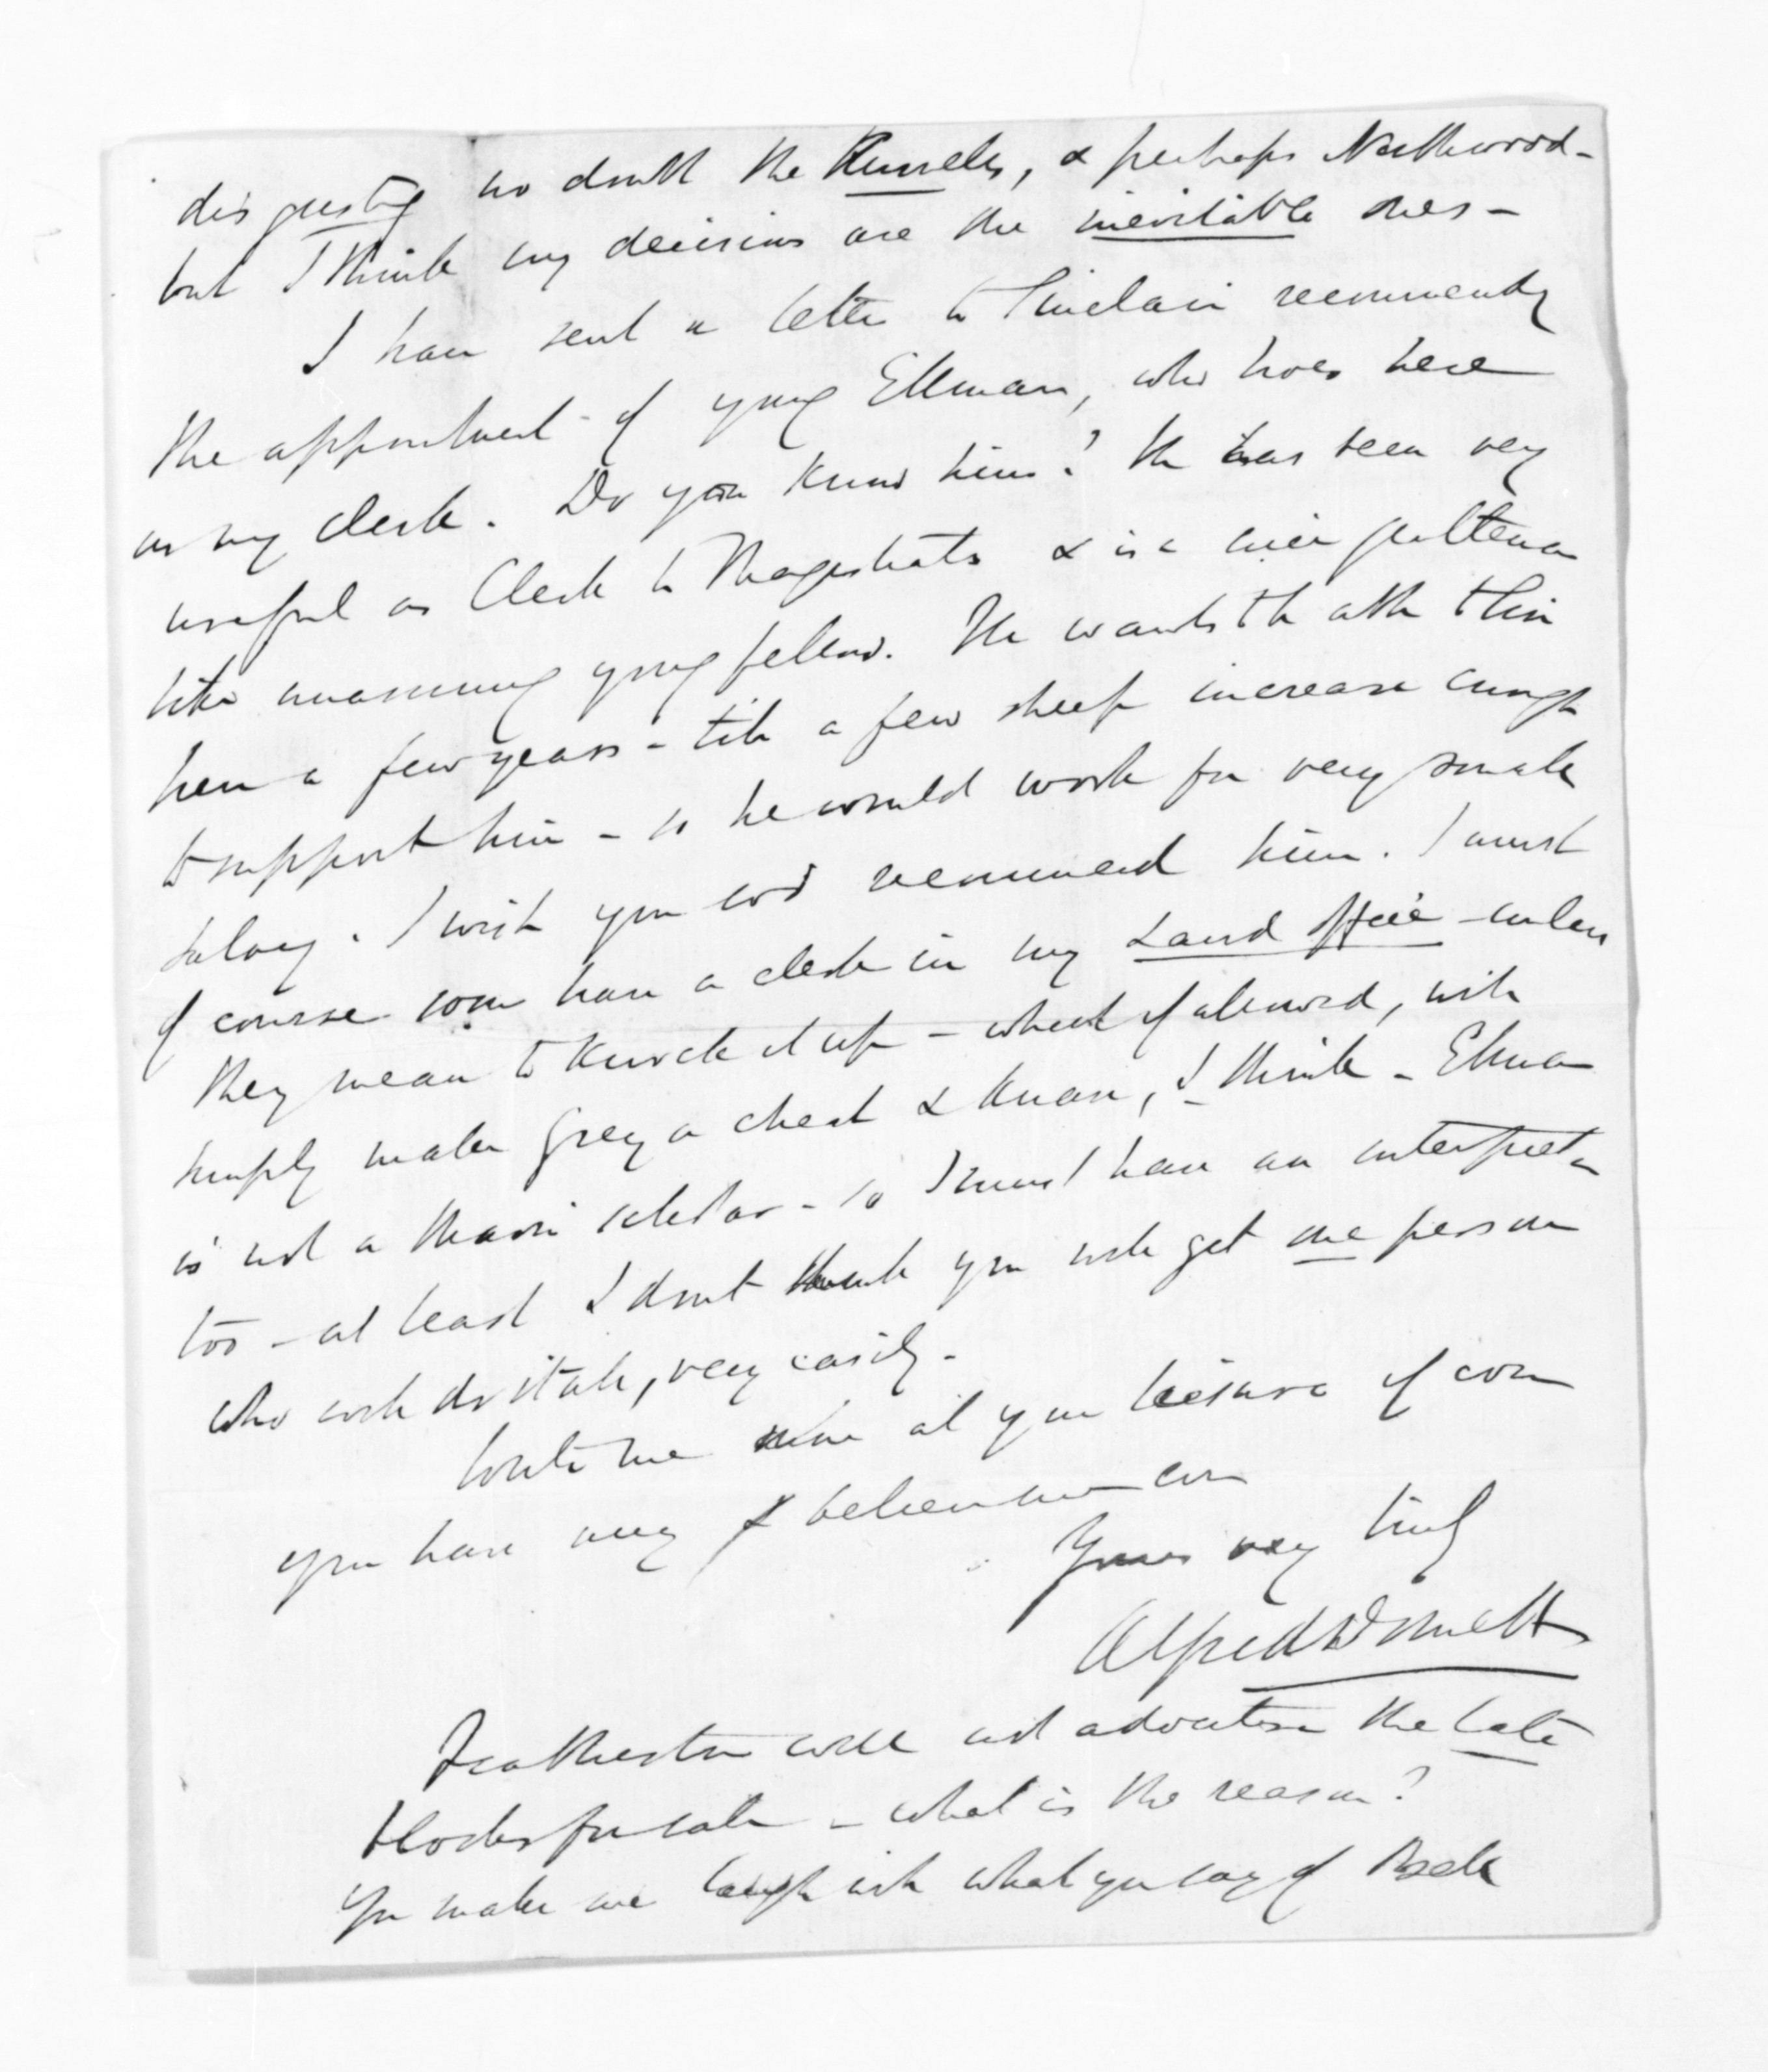 disgusting no doubt the Russells, & perhaps Northwood -
but I think my decisions are the inevitable ones -
I have sent a letter to Sinclair recommending
the appointment of young Ellman, who lives here
as my clerk. Do you know him? He has been very
useful as Clerk to Magistrate & is a nice gentleman
like unassuming young fellow. He wants to
here a few years - till a few sheep increase enough
to support him - so he would work for very small
salary. I wish you wd recommend him. I must
of course have a clerk in my Land Office - unless
they mean to knock it up - which if allowed, will
simply make Grey a cheat & knave, I think - Ellman
is not a Maori scholar - so I must have an interpreter
too - at least I don't think you will get one person
who will do it all, very easily.
Write me at your leisure if
you have any & believe me ever
Yours very truly
Alfred Domett
Featherston will not advertise the late
Blocks for sale - what is the reason?
You make me laugh with what you say of Bell